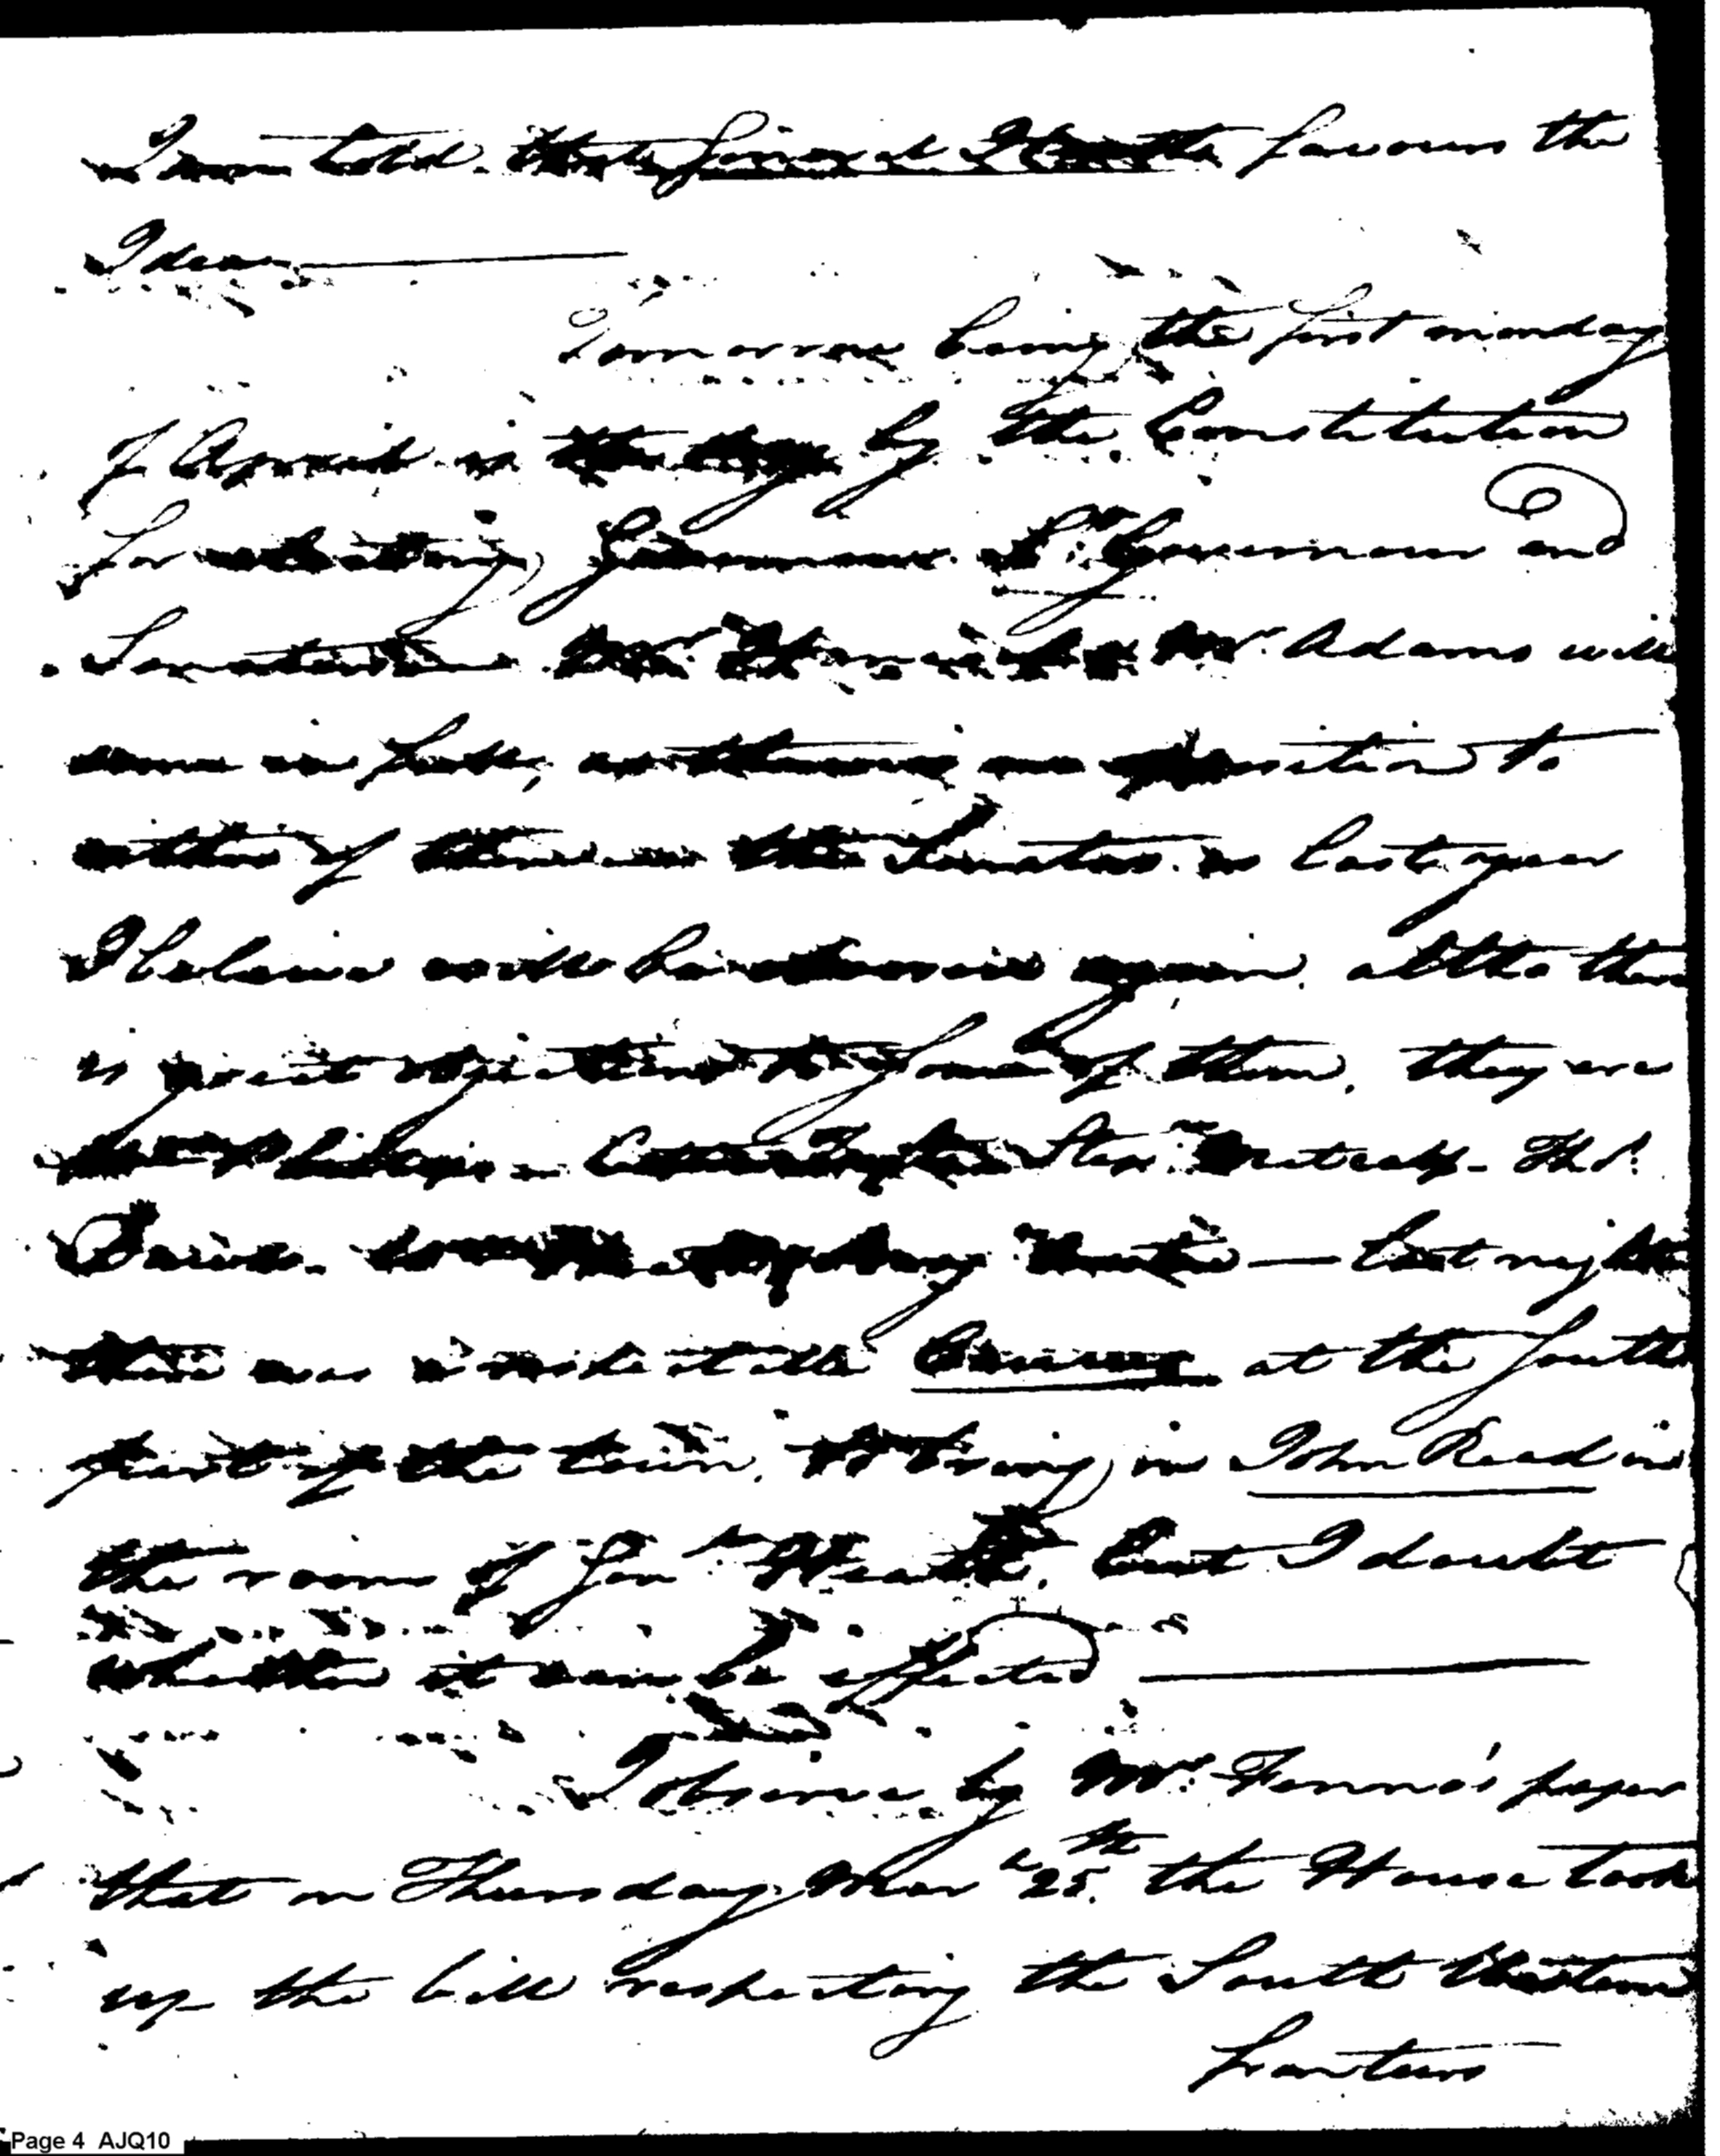 I am told that Genl. Heath favours the
Idea
Tomorrow being the first monday
of April is the day by the Constitution
for electing Governour Lt. Governour and
Senators Mr. Hancock & Mr. Adams will
come in fully, as there is no opposition to
either of them the Senators as last year
I beleive will be chosen in again, altho there
is great objections to some of them, they are
Wm. Phillips Stepn. Metcalf Thos.
Davis last night
there was a what is called Caucus at the South
part of the town, to bring in John Read in
the room of Genl. Heath, but I doubt
whether it can be effected
I observe by Mr. Fenno's paper
that on Thursday Mar 25th. the House took
up the bill respecting the South Western
frontier
Page 4 AJQ10